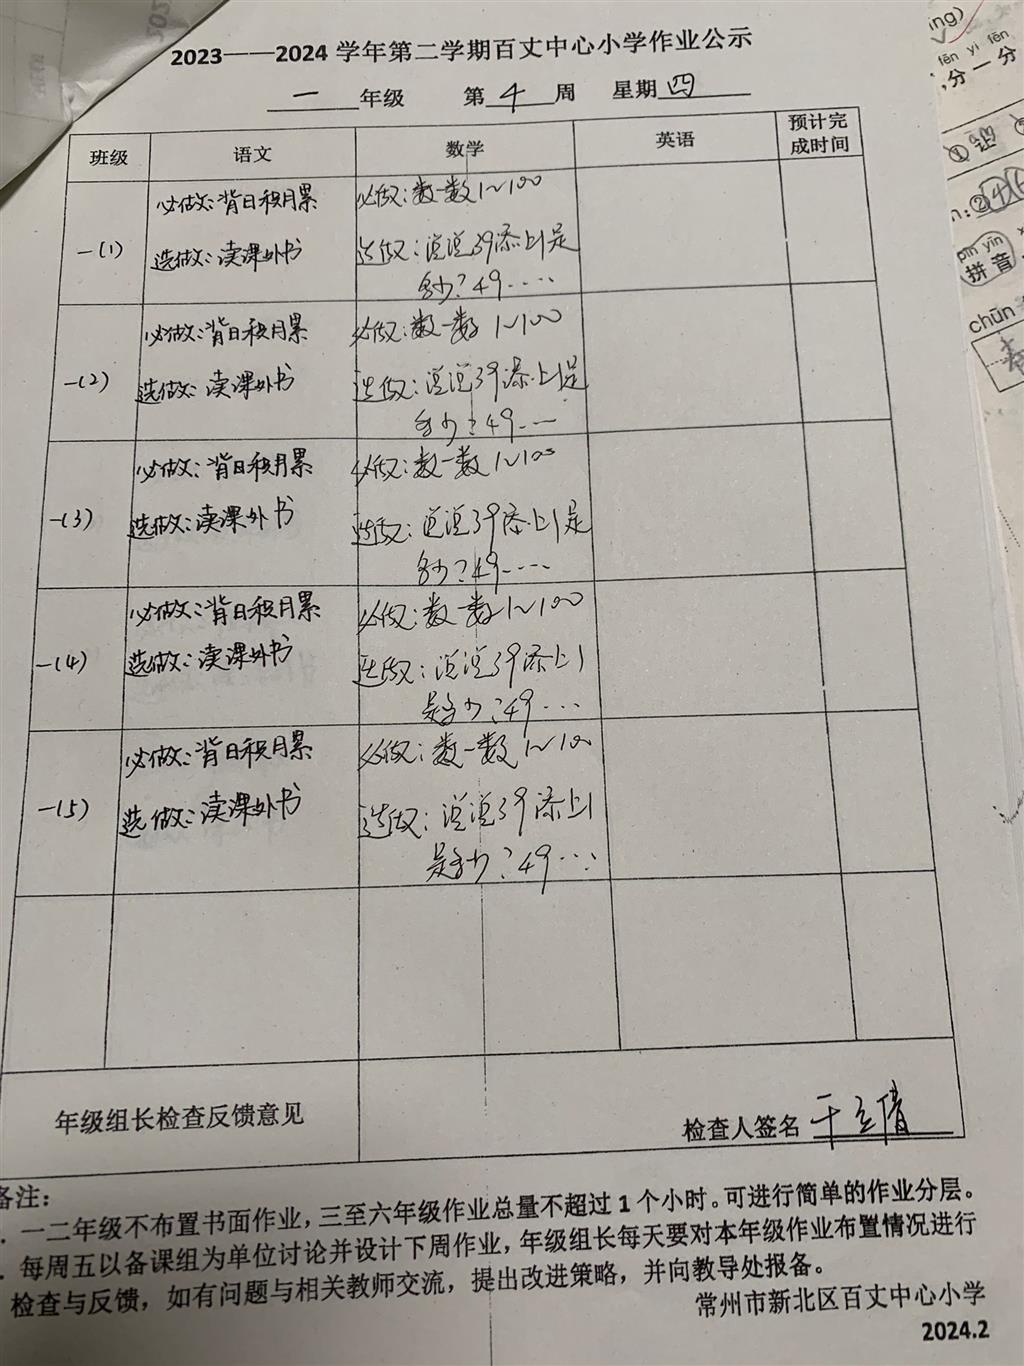 2023——2024 学年第二学期百丈中心小学作业公示
一 年级 第 4 周 星期 四
班级 语文 数学 英语 预计完成时间
一(1)
必做：背日积月累
选做：读课外书
必做：数一数1~100
选做：说说39添上1是
多少？49……
一(2)
必做：背日积月累
选做：读课外书
必做：数一数1~100
选做：说说39添上1是
多少？49……
一(3)
必做：背日积月累
选做：读课外书
必做：数一数1~100
选做：说说39添上1是
多少？49……
一(4)
必做：背日积月累
选做：读课外书
必做：数一数1~100
选做：说说39添上1
是多少？49……
一(5)
必做：背日积月累
选做：读课外书
必做：数一数1~100
选做：说说39添上1
是多少？49……
年级组长检查反馈意见
检查人签名
备注：
. 一二年级不布置书面作业，三至六年级作业总量不超过 1 个小时。可进行简单的作业分层。
. 每周五以备课组为单位讨论并设计下周作业，年级组长每天要对本年级作业布置情况进行
检查与反馈，如有问题与相关教师交流，提出改进策略，并向教导处报备。
常州市新北区百丈中心小学
2024.2
ing)
fēn yi fēn
分一分
pīn yīn
拼音
chūn
春